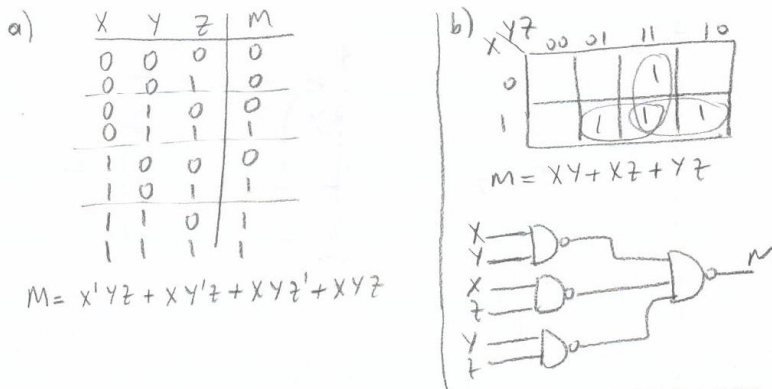 a)
X Y Z M
0 0 0 0
0 0 1 0
0 1 0 0
0 1 1 1
1 0 0 0
1 0 1 1
1 1 0 1
1 1 1 1
M = X'YZ + XY'Z + XYZ' + XYZ
b)
X YZ 00 01 11 10
0 1
1 1 1 1
M = XY + XZ + YZ
X
Y
M
X
Z
Y
Z